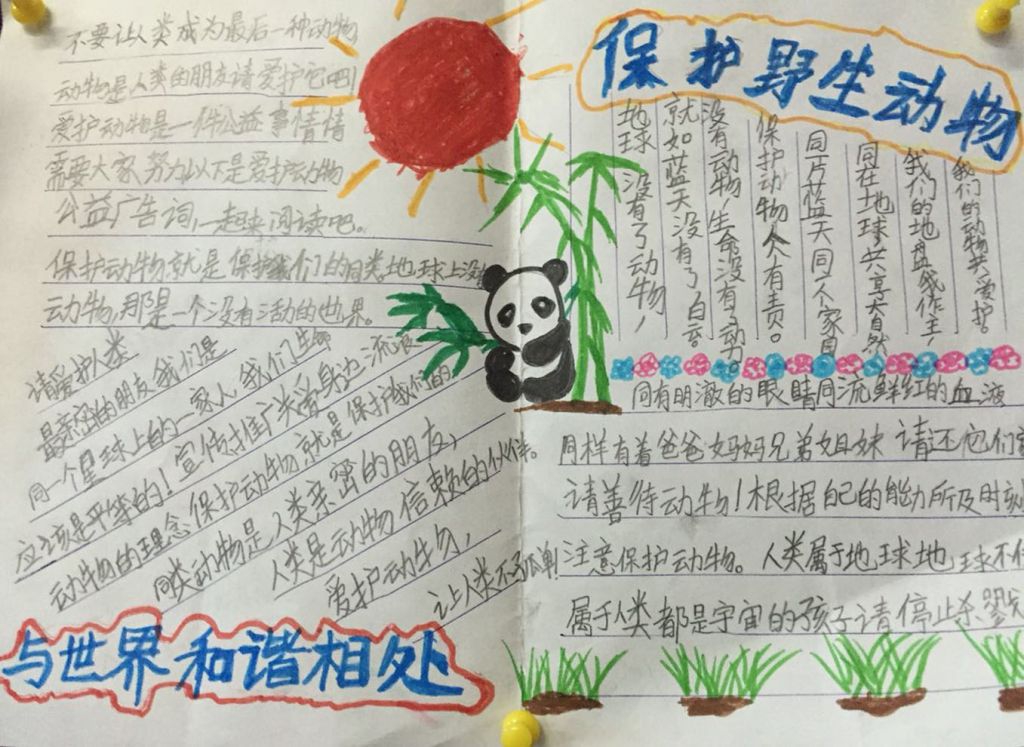 不要让人类成为最后一种动物
动物是人类的朋友请爱护它吧!
爱护动物是一件公益事情情
需要大家努力以下是爱护动物
公益广告词,一起来阅读吧。
保护动物就是保护我们的同类地球上没
动物,那是一个没有活动的世界。
请爱护人类
最亲密的朋友,我们是
同一个星球上的一家人,我们生命
应该是平等的!宣传推广关爱身边流浪
动物的理念保护动物就是保护我们的
同类动物是人类亲密的朋友,
人类是动物信赖的伙伴。
爱护动物,
让人类不孤单!
与世界和谐相处
保护野生动物
我们的动物共爱护。
我们的地盘我作主,
同在地球共享大自然
同片蓝天同个家园
保护动物人人有责。
没有动物,生命没有了动力。
就如蓝天没有了白云
地球没有了动物,
同有明澈的眼睛同流鲜红的血液
同样有着爸爸妈妈兄弟姐妹 请还它们
请善待动物!根据自己的能力所及时刻
注意保护动物。人类属于地球地球不
属于人类都是宇宙的孩子请停止杀戮